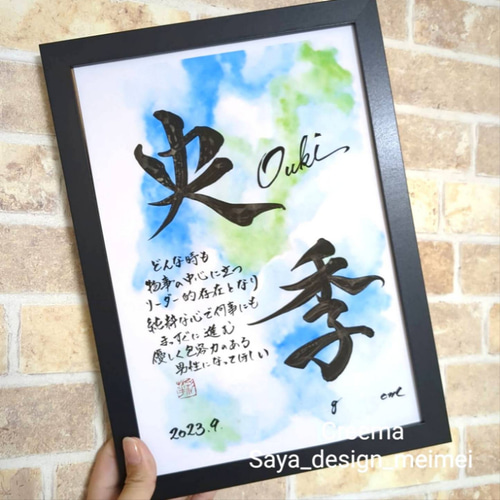 央
Ouki
季
どんな時も
物事の中心に立つ
リーダー的存在となり
純粋な心で何事にも
まっすぐに進む
優しく包容力のある
男性になってほしい
2023.9.
Creema
Saya_design_meimei